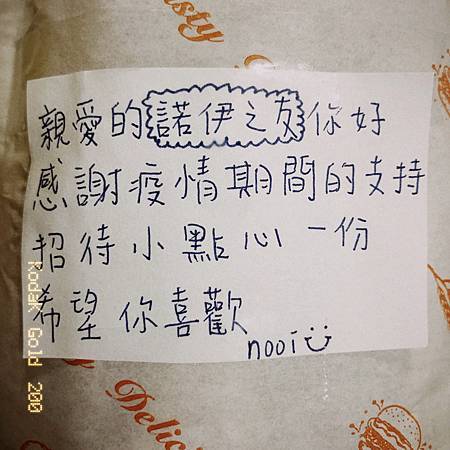 Tasty
親愛的諾伊之友你好
感謝疫情期間的支持
招待小點心一份
希望你喜歡
nooi
Kodak Gold 200
Delic